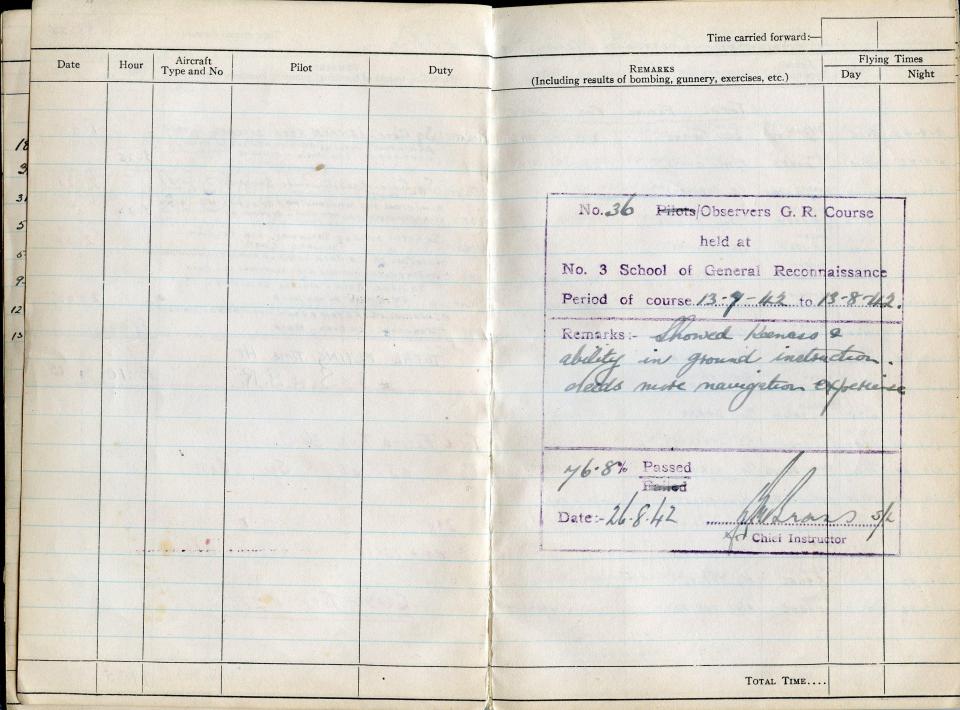 Time carried forward:—
Date Hour Aircraft Type and No Pilot Duty REMARKS (Including results of bombing, gunnery, exercises, etc.) Flying Times Day Night
18
3
31
5
6
9
12
13
No. 36 Pilots/Observers G. R. Course
held at
No. 3 School of General Reconnaissance
Period of course 13-7-42 to 13-8-42.
Remarks:- Showed Keeness &
ability in ground instruction.
needs more navigation experience
76.8% Passed
Failed
Date:- 26.8.42 S/L
Chief Instructor
TOTAL TIME....